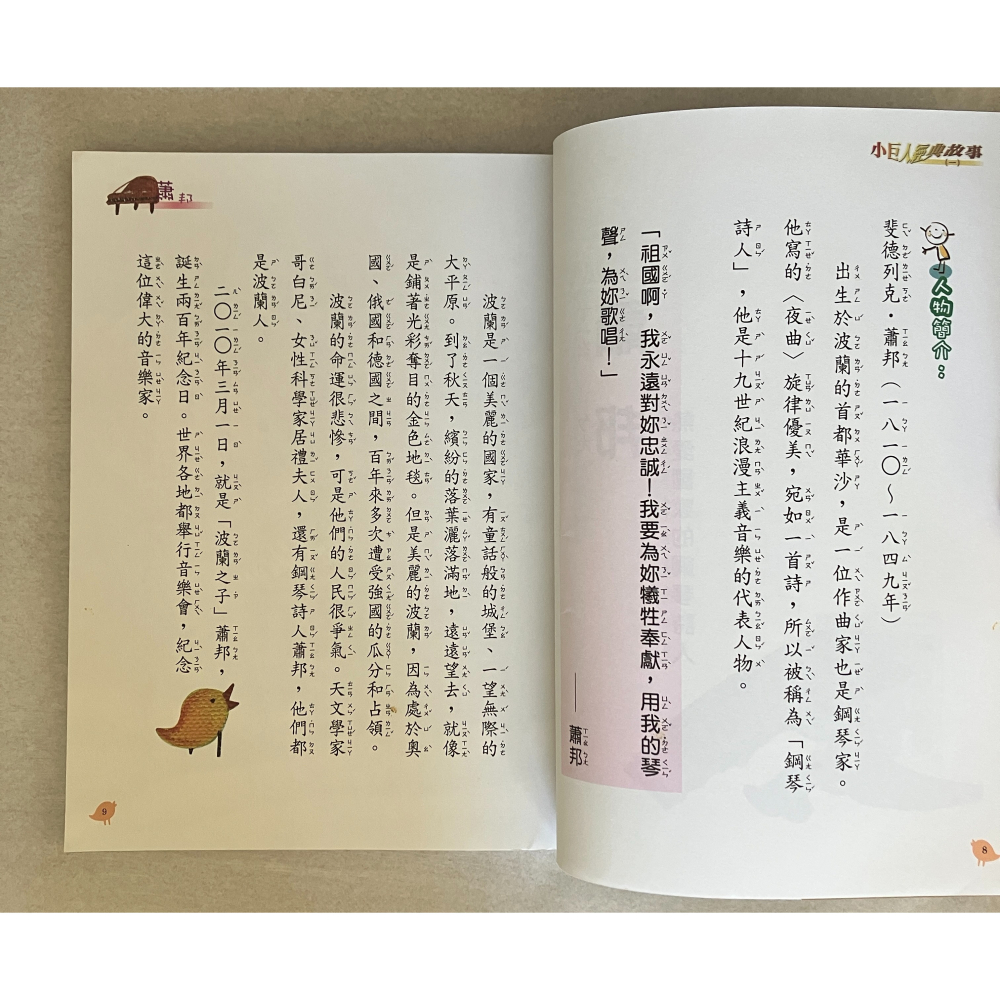 小巨人經典故事
(一)
人物簡介：
斐德列克・蕭邦（一八一〇～一八四九年）
出生於波蘭的首都華沙，是一位作曲家也是鋼琴家。
他寫的〈夜曲〉旋律優美，宛如一首詩，所以被稱為「鋼琴
詩人」，他是十九世紀浪漫主義音樂的代表人物。
「祖國啊，我永遠對妳忠誠！我要為妳犧牲奉獻，用我的琴
聲，為妳歌唱！」
——蕭邦
8
蕭邦
波蘭是一個美麗的國家，有童話般的城堡、一望無際的
大平原。到了秋天，繽紛的落葉灑落滿地，遠遠望去，就像
是鋪著光彩奪目的金色地毯。但是美麗的波蘭，因為處於奧
國、俄國和德國之間，百年來多次遭受強國的瓜分和占領。
波蘭的命運很悲慘，可是他們的人民很爭氣。天文學家
哥白尼、女性科學家居禮夫人，還有鋼琴詩人蕭邦，他們都
是波蘭人。
二〇一〇年三月一日，就是「波蘭之子」蕭邦，
誕生兩百年紀念日。世界各地都舉行音樂會，紀念
這位偉大的音樂家。
9